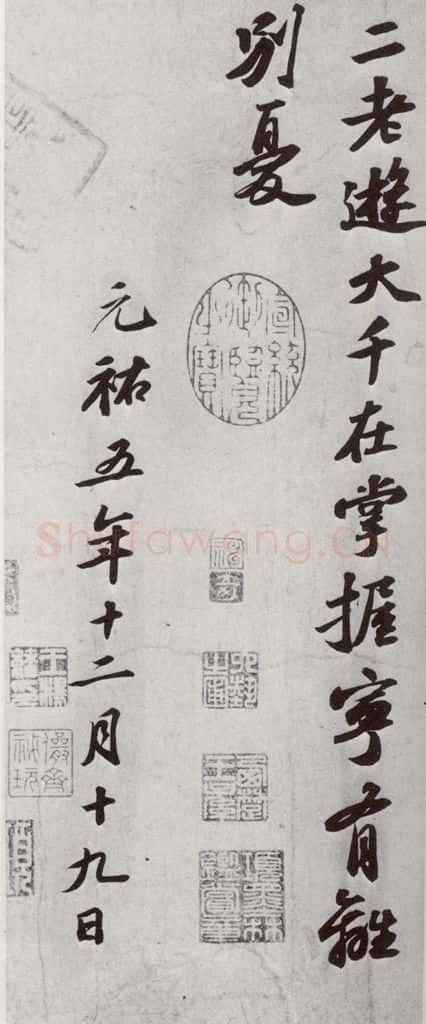 二老遊大千在掌握寧有離
別憂
元祐五年十二月十九日
宣統御覽之寶
Shufawang.CN